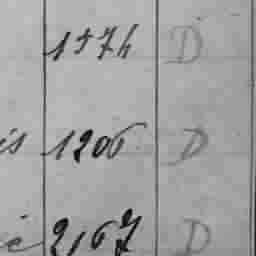 1574 D
is 1206 D
ie 2167 D